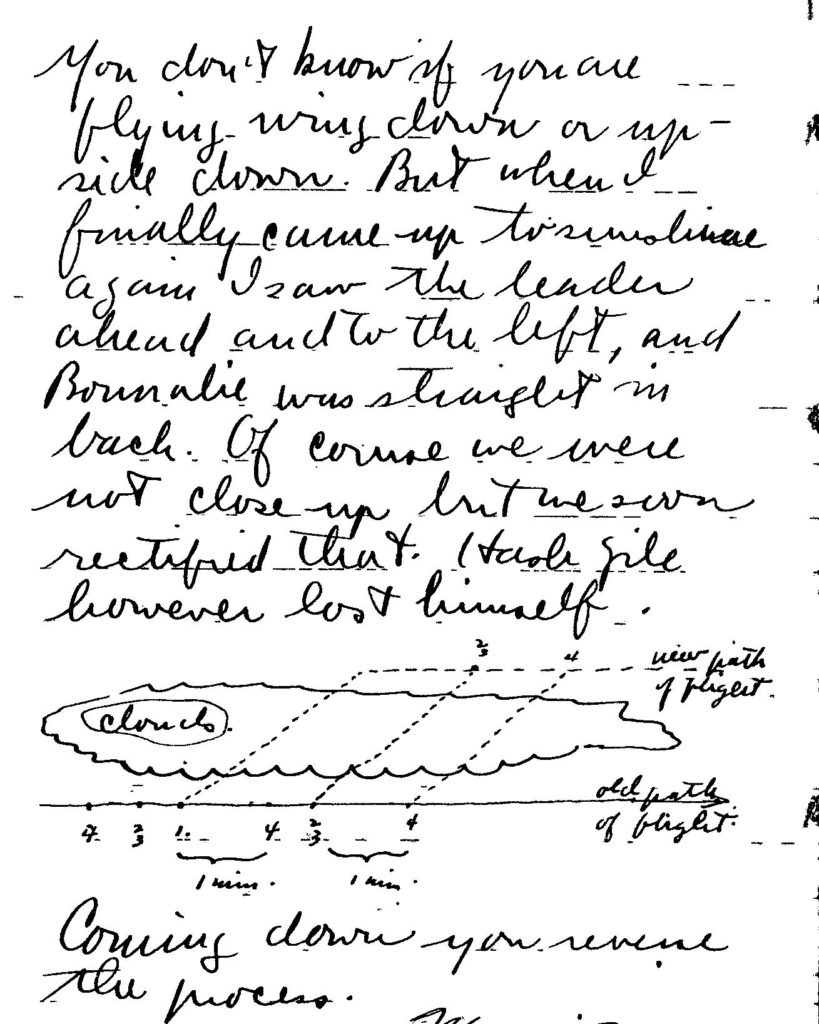 You don't know if you are
flying wing down or up-
side down. But when I
finally came up to sunshine
again I saw the leader
ahead and to the left, and
Bonnalie was straight in
back. Of course we were
not close up but we soon
rectified that. Hash Gile
however lost himself.
2
3
4
new path
of flight.
clouds.
old path
of flight.
4 2 1. 4 2 4
3 3
1 min. 1 min.
Coming down you reverse
the process.